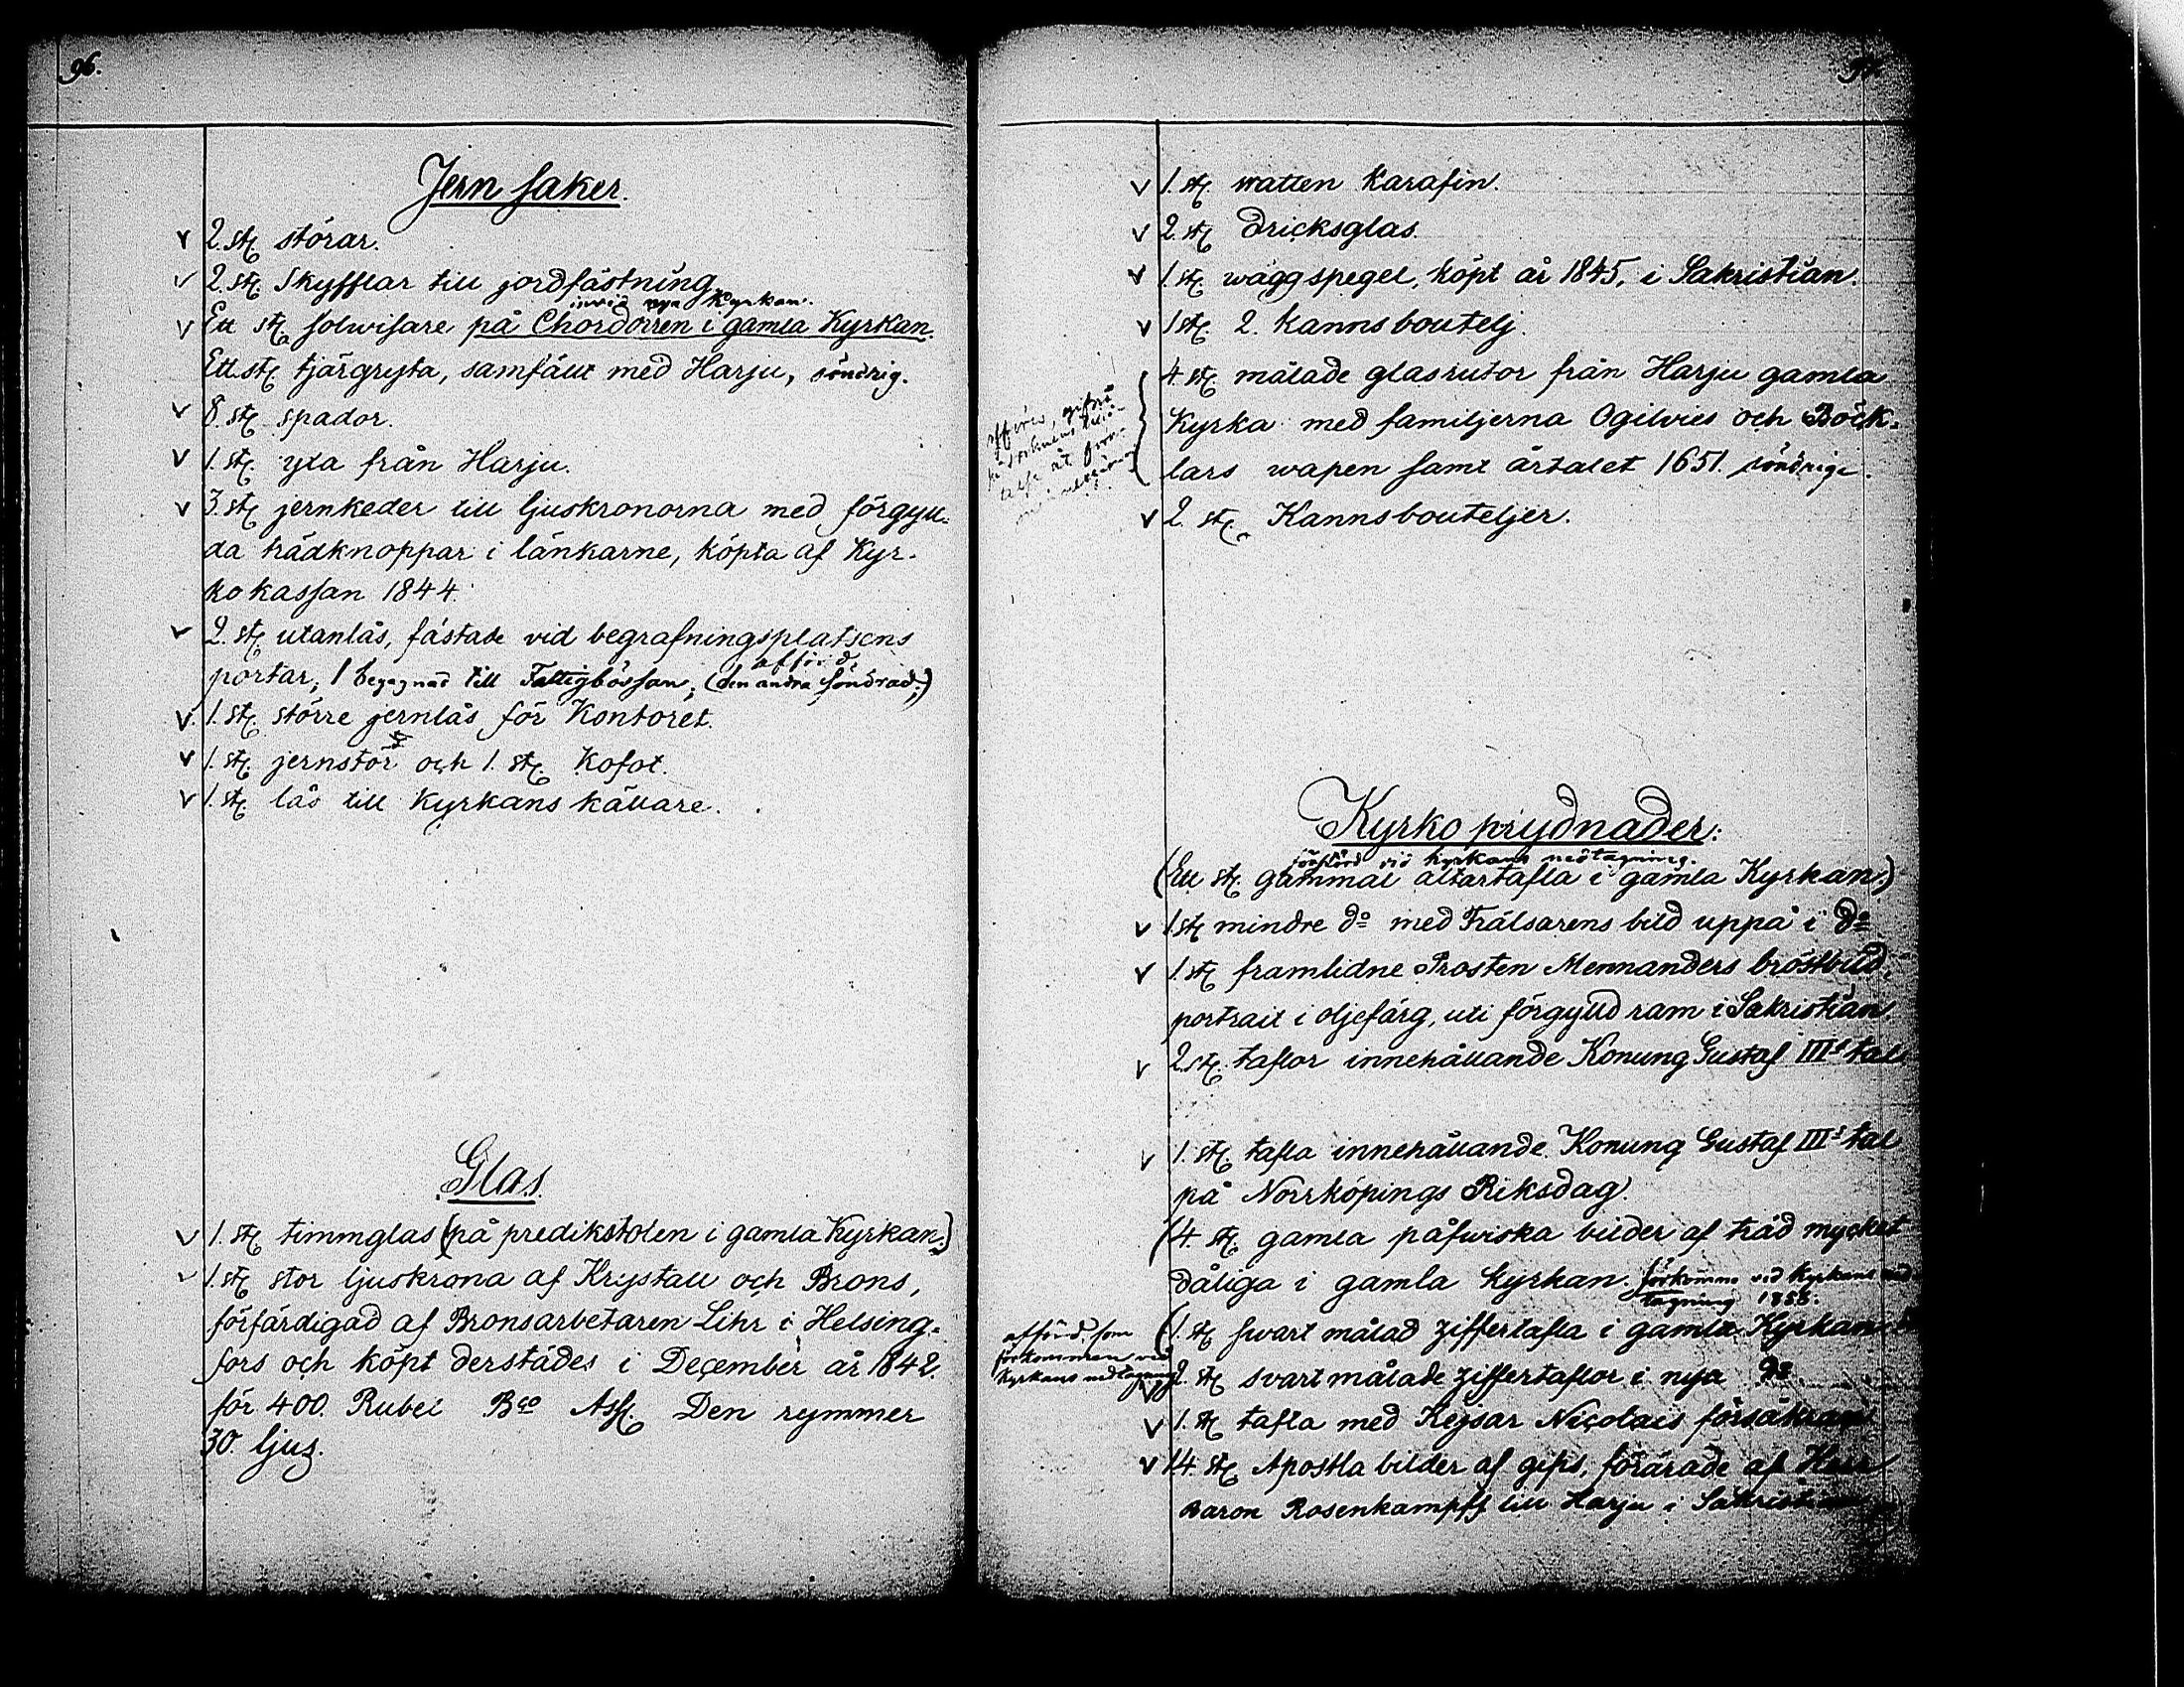 96.
Jern saker.
v 2. st. störar.
v 2. st. Skyfflar till jordfästning.
invid nya Kyrkan.
v Ett st. solvisare på Chordörren i gamla Kyrkan.
Ett st. tjärgryta, samfällt med Harju, söndrig.
v 8. st. spador.
v 1. st. yxa från Harju.
v 3. st. jernkeder till ljuskronorna med förgyll-
da trädknoppar i länkarne, köpta af Kyr-
ko kassan 1844.
v 2. st. utanlås, fästade vid begrafningsplatsens
afförd.
portar; 1 begagnad till Fattigbössan; (den andra söndrad;)
v. 1. st. större jernlås för Kontoret.
v 1. st. jernstör och 1. st. Kofot.
v 1. st. lås till Kyrkans källare.
Glas.
v 1. st. timmglas (på predikstolen i gamla Kyrkan.)
v 1. st. stor ljuskrona af Krystall och Brons,
förfärdigad af Bronsarbetaren Lihr i Helsing-
fors och köpt derstädes i December år 1842.
för 400. Rubel Bco Ass. Den rymmer
30 ljus.
v 1. st. watten karafin.
v 2. st. dricksglas.
v 1. st. wäggspegel, köpt år 1845, i Sakristian.
v 1 st. 2. kanns boutelj.
4. st. målade glasrutor från Harju gamla
Kyrka med familjerna Ogilvies och Böck-
lars wapen samt årtalet 1651. söndrige.
v 2. st. Kanns bouteljer.
Kyrko prydnader:
förstörd vid kyrkans nedtagning.
(Ett st. gammal altartafla i gamla Kyrkan.)
v 1 st. mindre do med Frälsarens bild uppå i do
v 1. st. framlidne Prosten Mennanders bröstbild,
portrait i oljefärg, uti förgylld ram i Sakristian
v 2. st. taflor innehållande Konung Gustaf IIIs tal
v 1. st. tafla innehållande Konung Gustaf IIIs tal
på Norrköpings Riksdag.
(4. st. gamla påfwiska bilder af träd mycket
dåliga i gamla kyrkan. förkomne vid kyrkans ned
tagning
afförd. som
förkommen vid
kyrkans nedtagning
(1. st. swart målad ziffertafla i gamla Kyrkan
2. st. svart målade ziffertaflor i nya do
v 1. st. tafla med Kejsar Nicolais försäkran
v 14. st. Apostla bilder af gips, förärade af Herr
Baron Rosenkampff till Harju i Sakristian